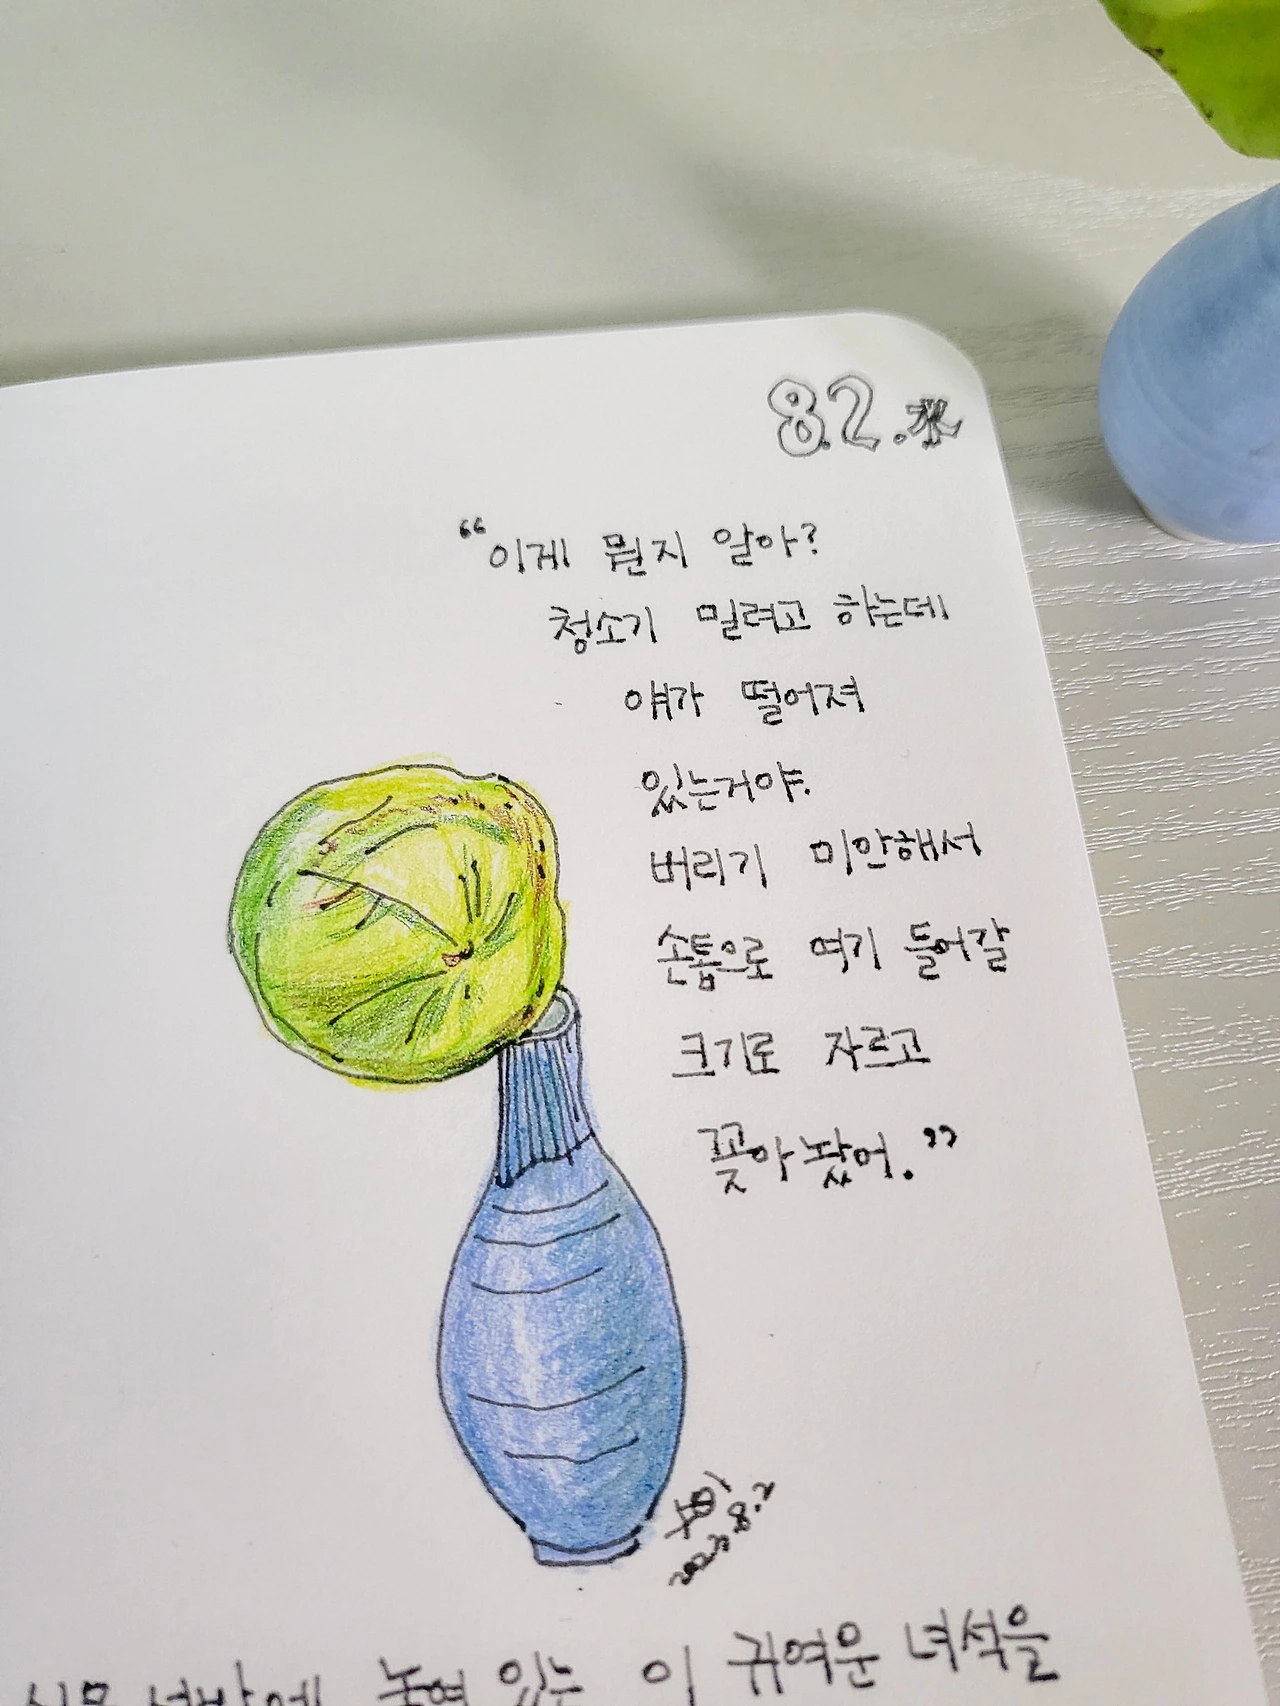 8.2.水
“이게 뭔지 알아?
청소기 밀려고 하는데
얘가 떨어져
있는거야.
버리기 미안해서
손톱으로 여기 들어갈
크기로 자르고
꽂아놨어.”
2023.8.2
놓여 있는 이 귀여운 녀석을